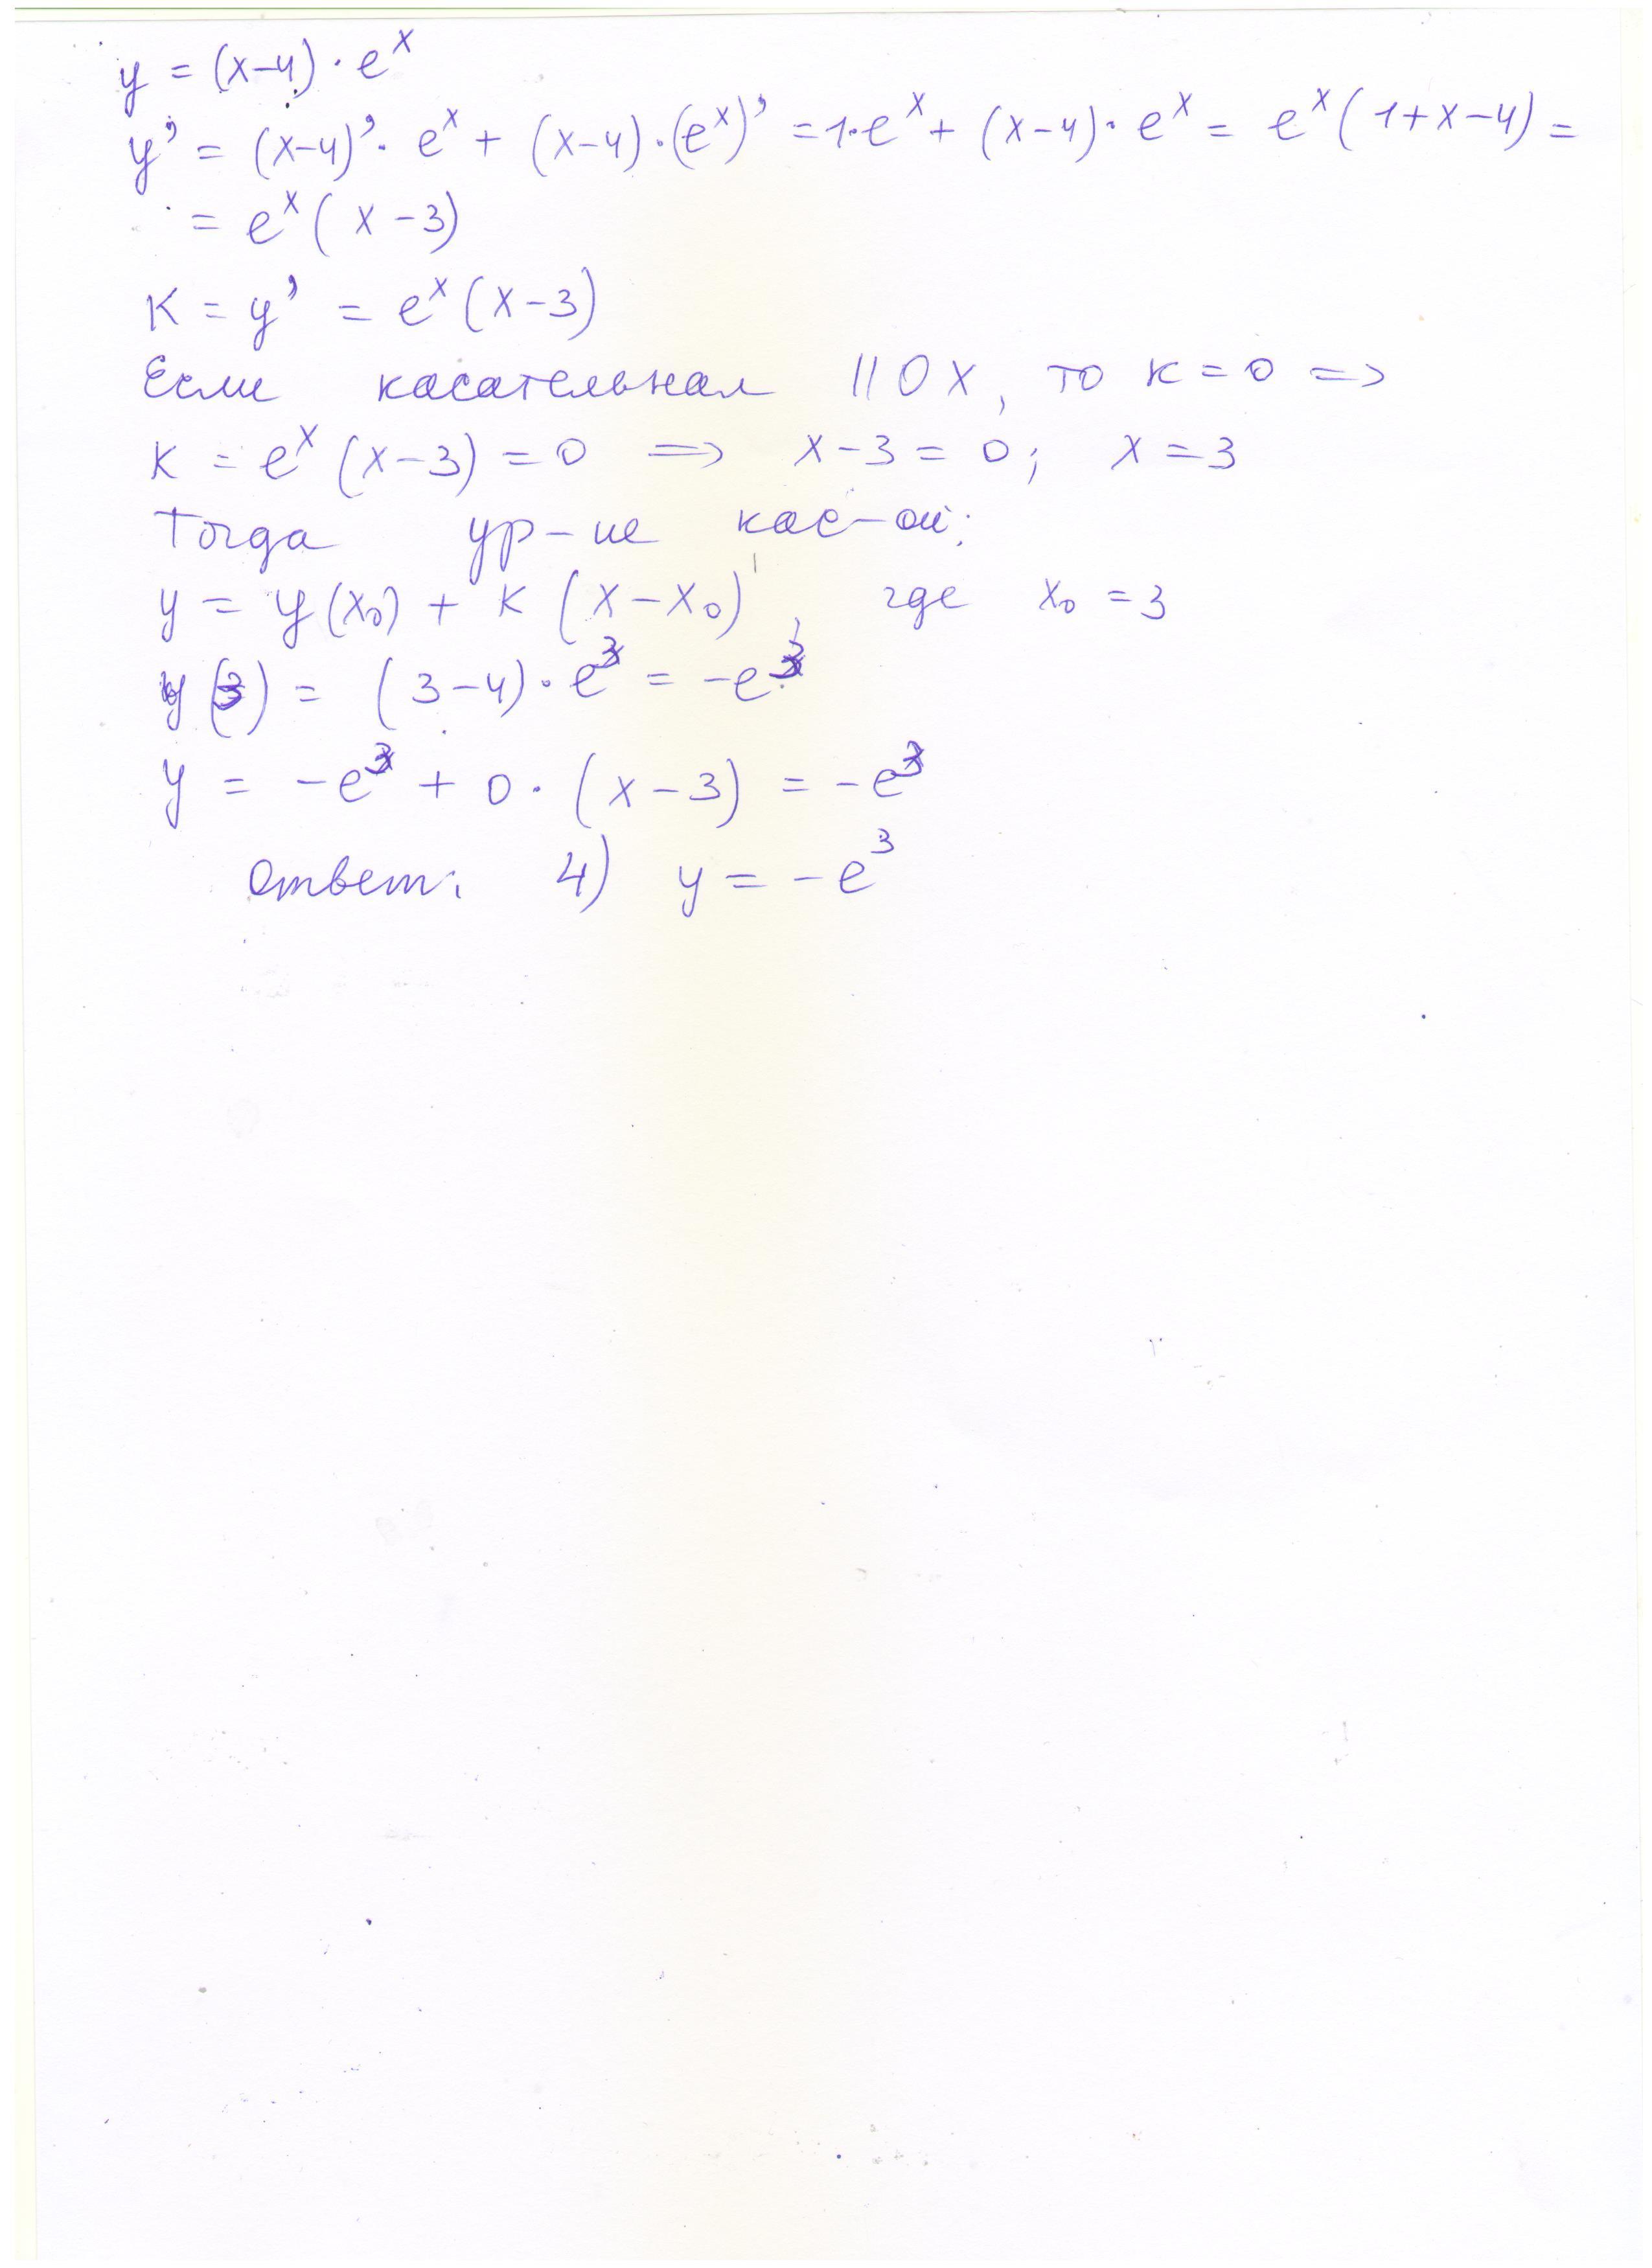 y = (x-4) · e^x
y' = (x-4)' · e^x + (x-4) · (e^x)' = 1·e^x + (x-4) · e^x = e^x (1+x-4) =
= e^x (x-3)
K = y' = e^x (x-3)
Если касательная || OX, то к = 0 =>
K = e^x (x-3) = 0 => x-3 = 0; x = 3
Тогда ур-ие кас-ой:
y = y(x₀) + к (x-x₀), где x₀ = 3
y(3) = (3-4) · e^3 = -e^3
y = -e^3 + 0 · (x-3) = -e^3
Ответ: 4) y = -e^3